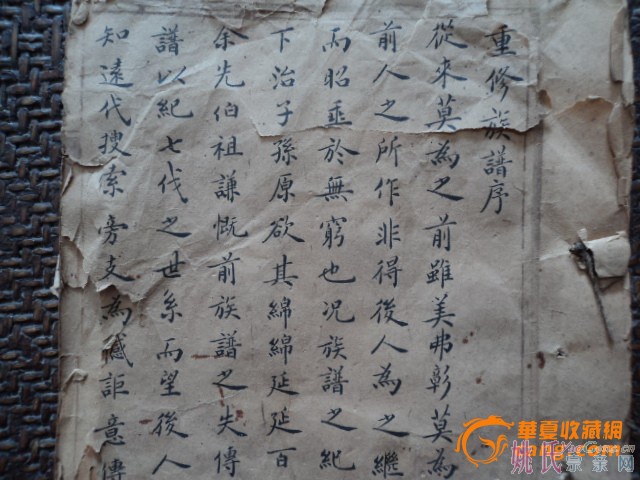 重修族譜序
從來莫為之前雖美弗彰莫為
前人之所作非得後人為之繼
而昭垂於無窮也况族譜之紀
下治子孫原欲其綿綿延延百
余先伯祖謙慨前族譜之失傳
譜以紀七代之世系而望後人
知遠代搜索旁支為憾詎意傳
華夏收藏網
姚氏宗亲网